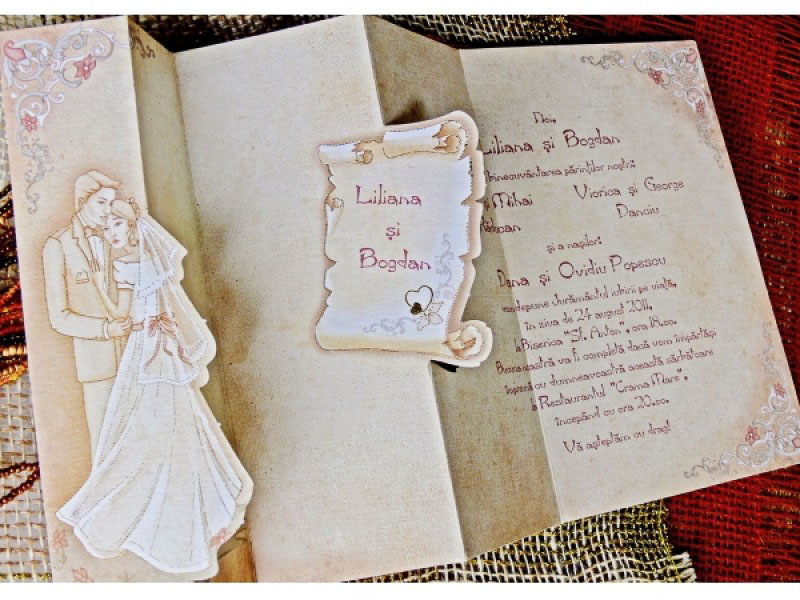 Liliana
și
Bogdan
Noi,
Liliana și Bogdan
binecuvântarea părinților noștri:
Mihai Viorica și George
Danciu
și a nașilor:
Dana și Ovidiu Popescu
depune Jurământul iubirii pe viață,
în ziua de 24 august 2011,
la Biserica "Sf. Anton", ora 18.00.
Bucuria noastră va fi completă dacă vom împărtăși
împreună cu dumneavoastră această sărbătoare
la Restaurantul "Crama Mare",
începând cu ora 20.00.
Vă așteptăm cu drag!